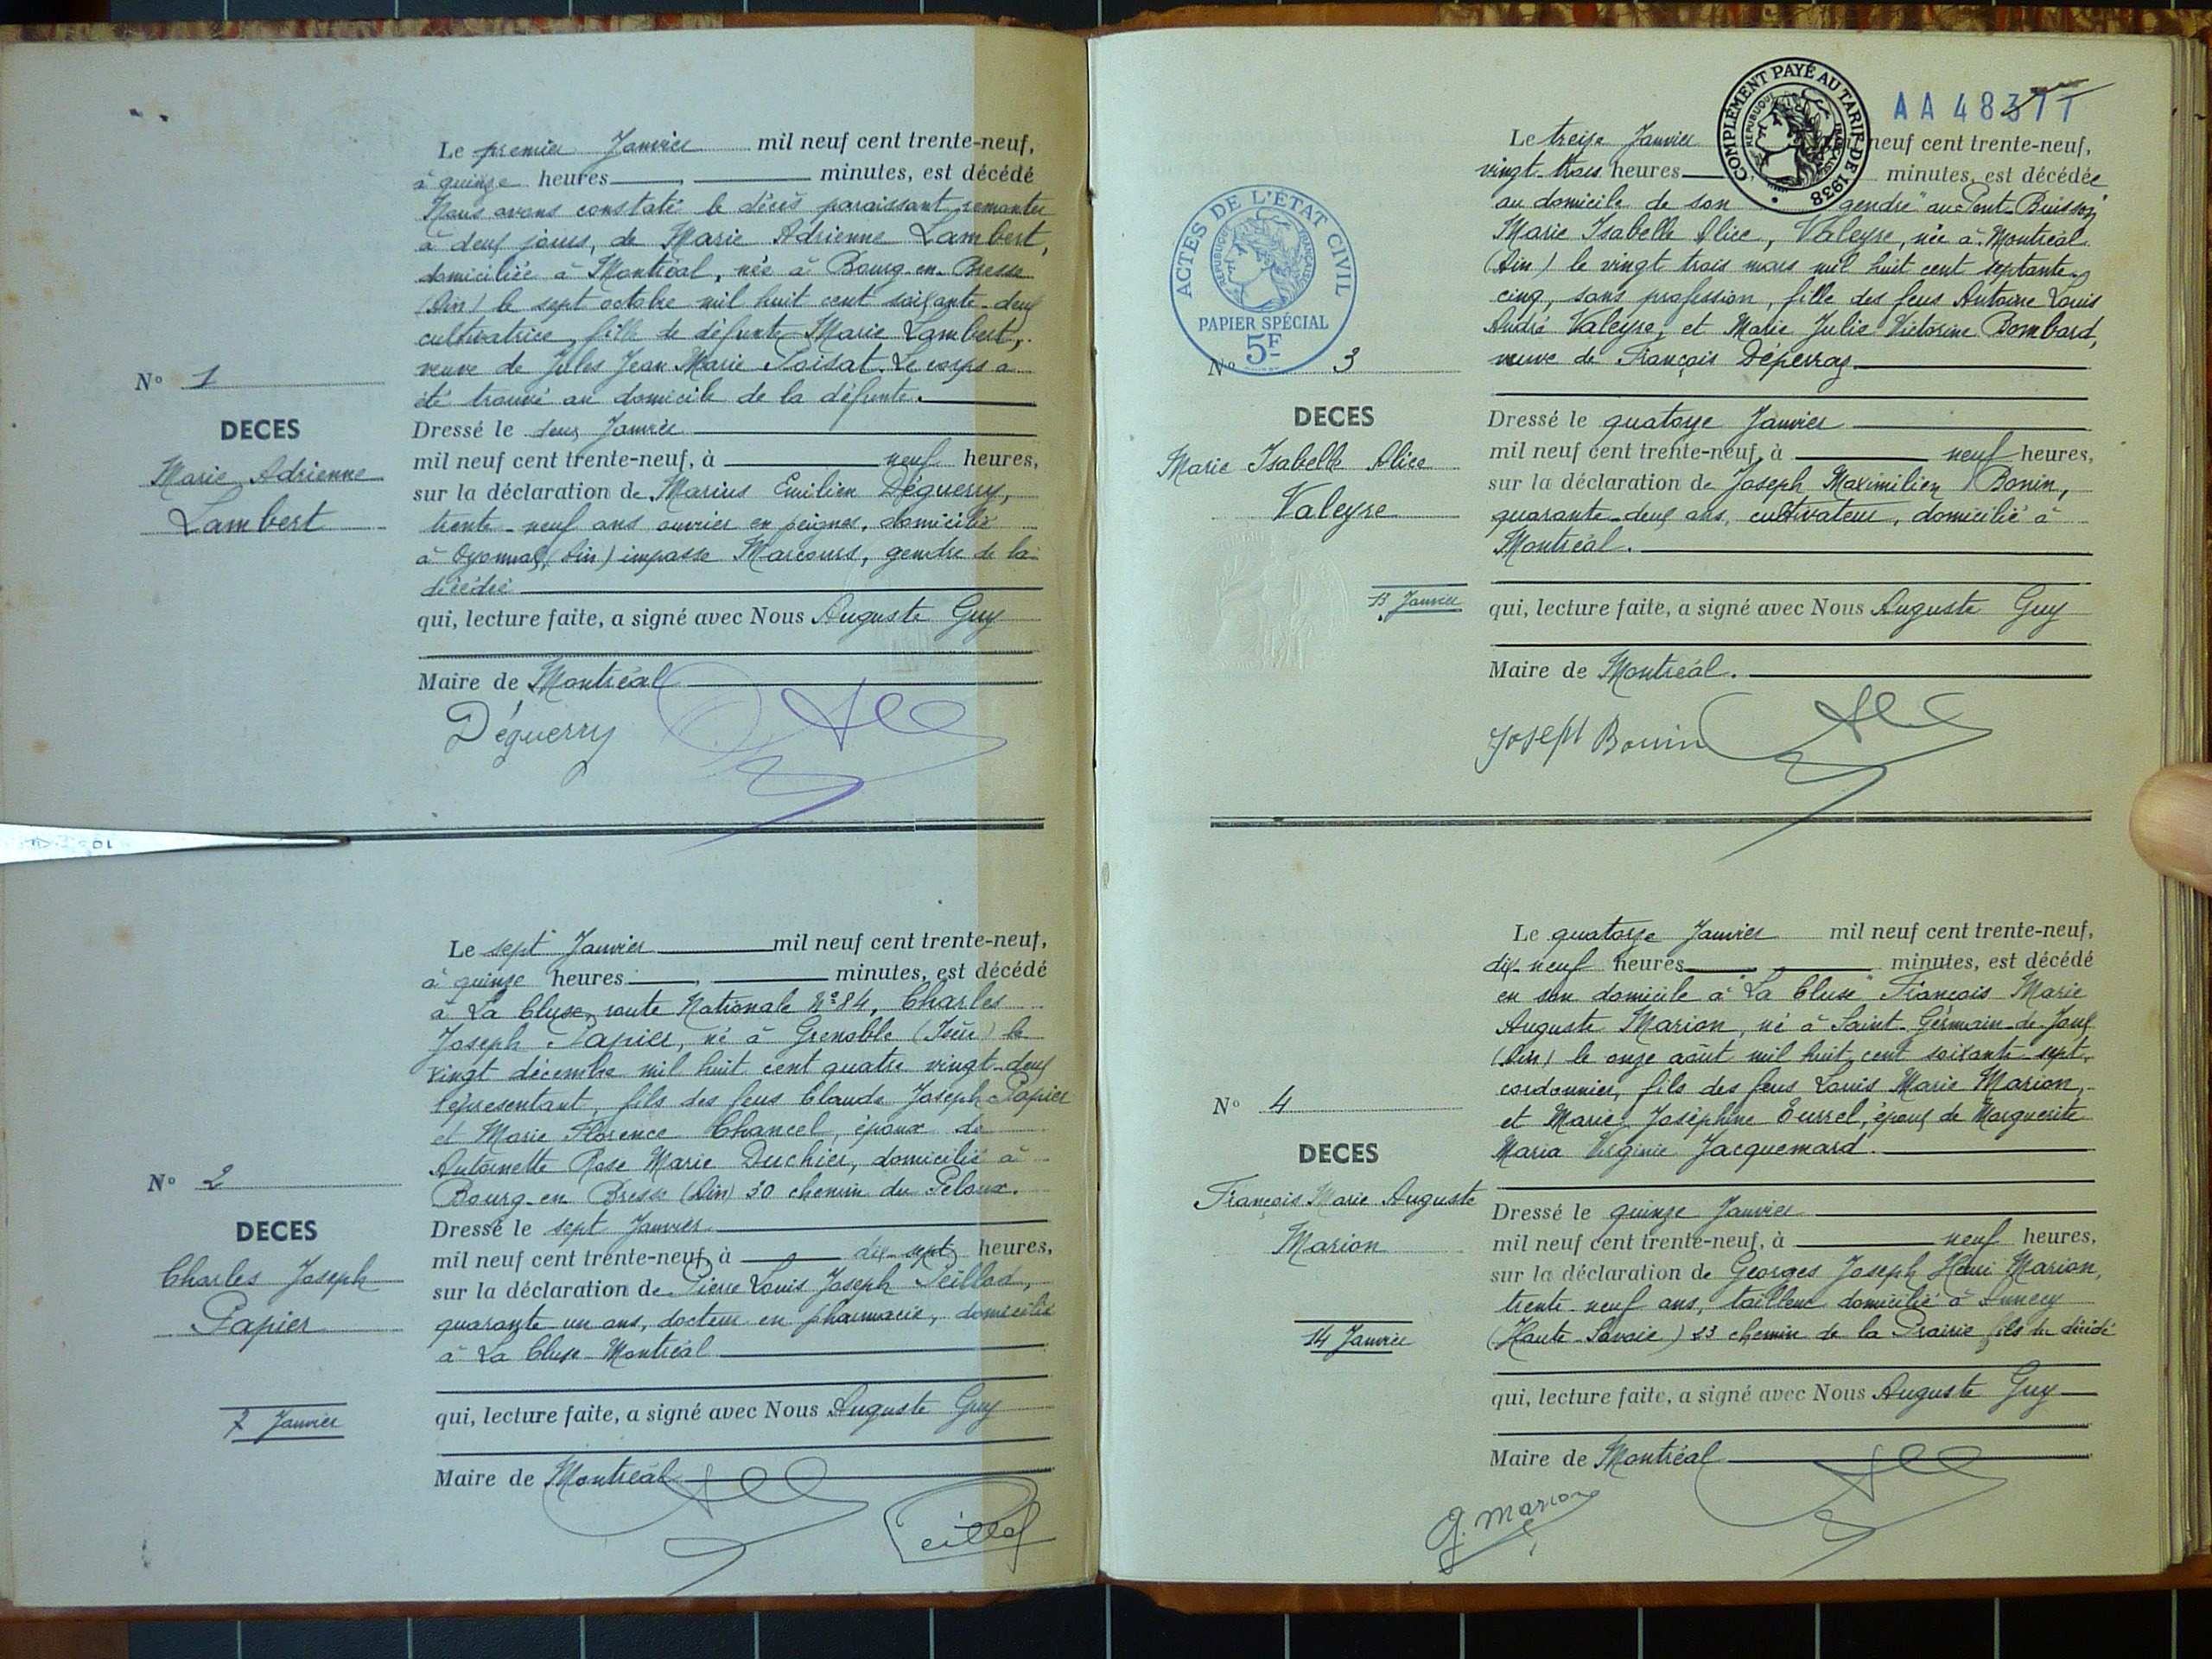 Le premier Janvier mil neuf cent trente-neuf,
à quinze heures, minutes, est décédé
Nous avons constaté le décès paraissant remonter
à deux jours, de Marie Adrienne Lambert,
domiciliée à Montréal, née à Bourg-en-Bresse
(Ain) le sept octobre mil huit cent soixante-deux
cultivatrice, fille de défunte Marie Lambert,
veuve de Jules Jean Marie Poisat. Le corps a
été trouvé au domicile de la défunte.
N° 1
DECES
Marie Adrienne
Lambert
Dressé le deux Janvier
mil neuf cent trente-neuf, à neuf heures,
sur la déclaration de Marius Emilien Déguerry,
trente-neuf ans ouvrier en peignes, domicilié
à Oyonnax (Ain) impasse Marcours, gendre de la
décédée
qui, lecture faite, a signé avec Nous Auguste Guy
Maire de Montréal
Déguerry
Le sept Janvier mil neuf cent trente-neuf,
à quinze heures, minutes, est décédé
à La Cluse, route Nationale N°84, Charles
Joseph Papier, né à Grenoble (Isère) le
vingt décembre mil huit cent quatre vingt-deux
représentant, fils des feus Claude Joseph Papier
et Marie Florence Chancel, époux de
Antoinette Rose Marie Duchier, domicilié à
Bourg-en-Bresse (Ain) 30 chemin du Peloux.
N° 2
DECES
Charles Joseph
Papier
7 Janvier
Dressé le sept Janvier
mil neuf cent trente-neuf, à dix-sept heures,
sur la déclaration de Pierre Louis Joseph Peillod,
quarante un ans, docteur en pharmacie, domicilié
à La Cluse-Montréal
qui, lecture faite, a signé avec Nous Auguste Guy
Maire de Montréal
Peillod
AA 48377
COMPLÉMENT PAYÉ AU TARIF DE 1938
RÉPUBLIQUE FRANÇAISE
ACTES DE L'ÉTAT CIVIL
RÉPUBLIQUE FRANÇAISE
PAPIER SPÉCIAL
5F
Le treize Janvier neuf cent trente-neuf,
vingt-trois heures minutes, est décédée
au domicile de son gendre "au Pont-Buisson"
Marie Isabelle Alice, Valeyre, née à Montréal
(Ain) le vingt trois mars mil huit cent septante-
cinq, sans profession, fille des feus Antoine Louis
André Valeyre, et Marie Julie Victorine Bombard,
veuve de François Déperraz
N° 3
DECES
Marie Isabelle Alice
Valeyre
13 Janvier
Dressé le quatorze Janvier
mil neuf cent trente-neuf, à neuf heures,
sur la déclaration de Joseph Maximilien Bonin,
quarante-deux ans, cultivateur, domicilié à
Montréal.
qui, lecture faite, a signé avec Nous Auguste Guy
Maire de Montréal.
Joseph Bonin
Le quatorze Janvier mil neuf cent trente-neuf,
dix-neuf heures, minutes, est décédé
en son domicile à "La Cluse" François Marie
Auguste Marion, né à Saint-Germain-de-Joux
(Ain) le onze août mil huit cent soixante-sept,
cordonnier, fils des feus Louis Marie Marion,
et Marie Joséphine Eurrel, époux de Marguerite
Maria Virginie Jacquemard.
N° 4
DECES
François Marie Auguste
Marion
14 Janvier
Dressé le quinze Janvier
mil neuf cent trente-neuf, à neuf heures,
sur la déclaration de Georges Joseph Henri Marion,
trente-neuf ans, tailleur domicilié à Annecy
(Haute-Savoie) 23 chemin de la Prairie fils du décédé
qui, lecture faite, a signé avec Nous Auguste Guy
Maire de Montréal
G. Marion